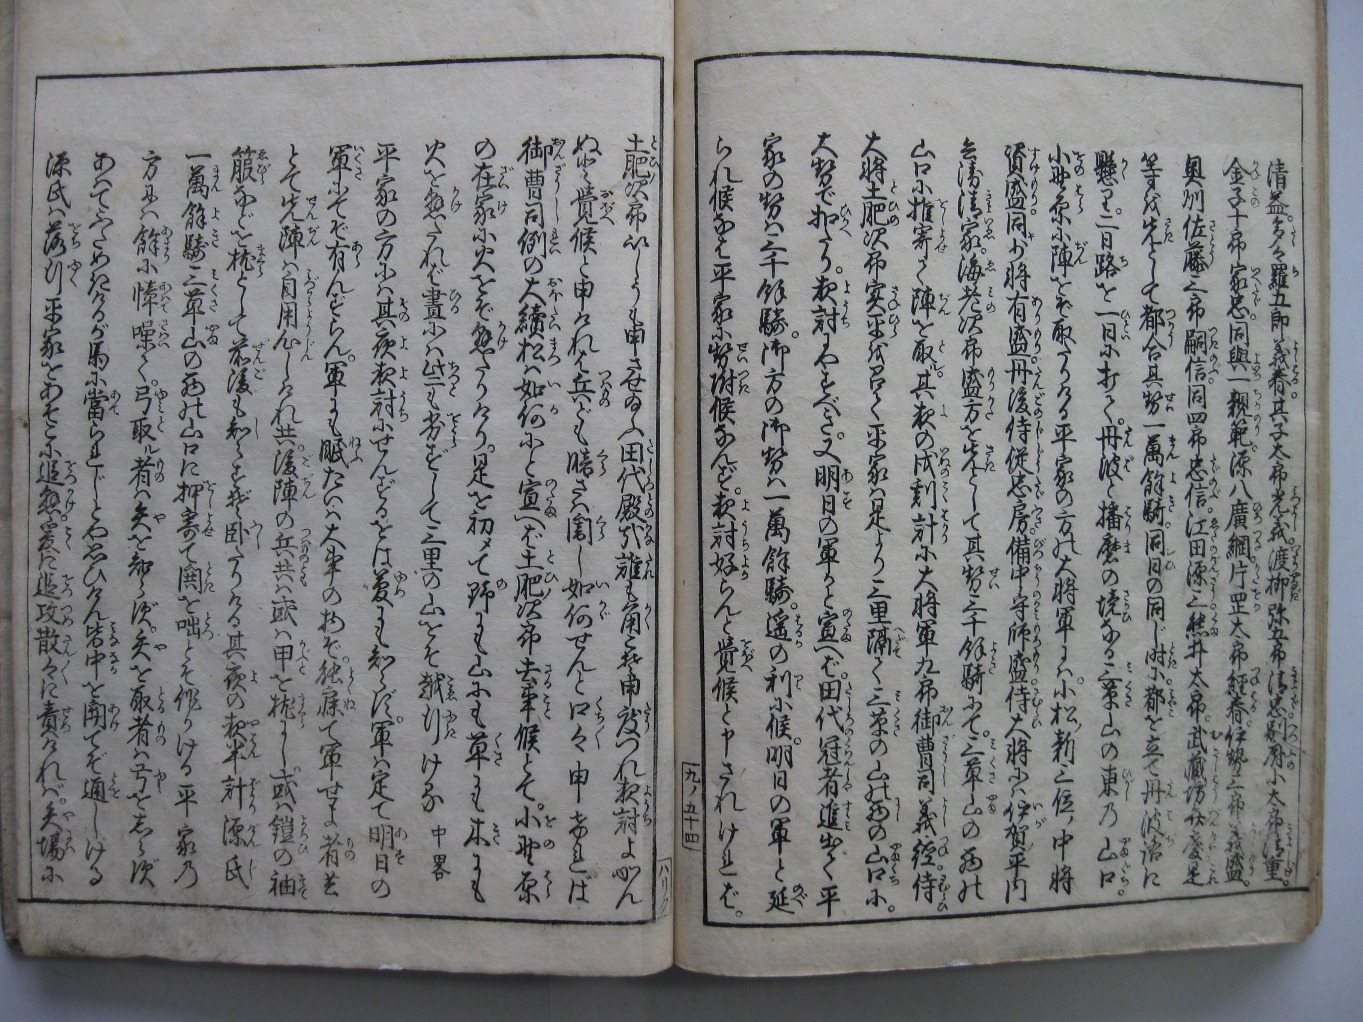 清益。多々羅五郎義春其子太郎光義。渡柳弥五郎清忠。別府小太郎清重。
金子十郎家忠。同與一親範。源八廣綱。片罡太郎経春。伊勢三郎義盛。
奥州佐藤三郎嗣信。同四郎忠信。江田源三。熊井太郎。武蔵坊弁慶。是
等を先として都合其勢一萬餘騎。同日の同じ時小都を立て丹波路に
懸り。二日路を一日小打て。丹波と播磨の境なる三草山の東乃山口
小野原小陣をぞ取りける。平家の方の大将軍には小松新三位中将
資盛。同少将有盛。丹後侍従忠房。備中守師盛。侍大将小ハ伊賀平内
兵衛清家。海老次郎盛方を先として其勢三千餘騎小て。三草山の西の
山口小推寄て陣を取。其夜の戌刻計小大将軍九郎御曹司義経侍
大将土肥次郎実平を召て平家ハ是より三里隔て三草の山の西の山口小。
大勢で扣たり。夜討やすべき。又明日の軍かと宣へば。田代冠者進出て平
家の勢ハ三千餘騎。御方の御勢ハ一萬餘騎。遥の利小候。明日の軍と延
られ候なば平家小勢附候なんず。夜討好らんと覺候と申されければ。
九ノ五十四
土肥次郎いしうも申させ給ふ田代殿哉誰も角こそ申度つれ夜討よかん
ぬと覺候と申けれバ兵ども暗さハ闇し如何せんと口々申ければ
御曹司例の大續松ハ如何小と宣へば土肥次郎去事候とて。小野原
の在家小火をぞ懸たりける。是を初メて野にも山にも草にも木にも
火を懸たれば晝小ハちっとも劣ずして三里の山をぞ越行ける 中畧
平家の方小ハ其夜夜討小せんずるをば夢にも知らず。軍ハ定て明日の
軍小てぞ有んずらん。軍にも眠たいハ大事の物ぞ。能寐て軍せよ者共
とて先陣ハ自用心しけれ共。後陣の兵共ハ或ハ甲を枕にし或ハ鎧の袖
箙などを枕として前後も知らずぞ臥たりける其夜の夜半計源氏
一萬餘騎三草山の西の山口に押寄て閧を咄とぞ作りける平家乃
方にハ餘小憧噪て。弓取ル者ハ矢を知らず。矢を取者ハ弓をしらず
あわてふためきけるが馬小當られじとや思ひけん皆中を開てぞ通しける
源氏ハ落行平家をあそこ小追懸。爰に追攻散々に責ければ。矢場小